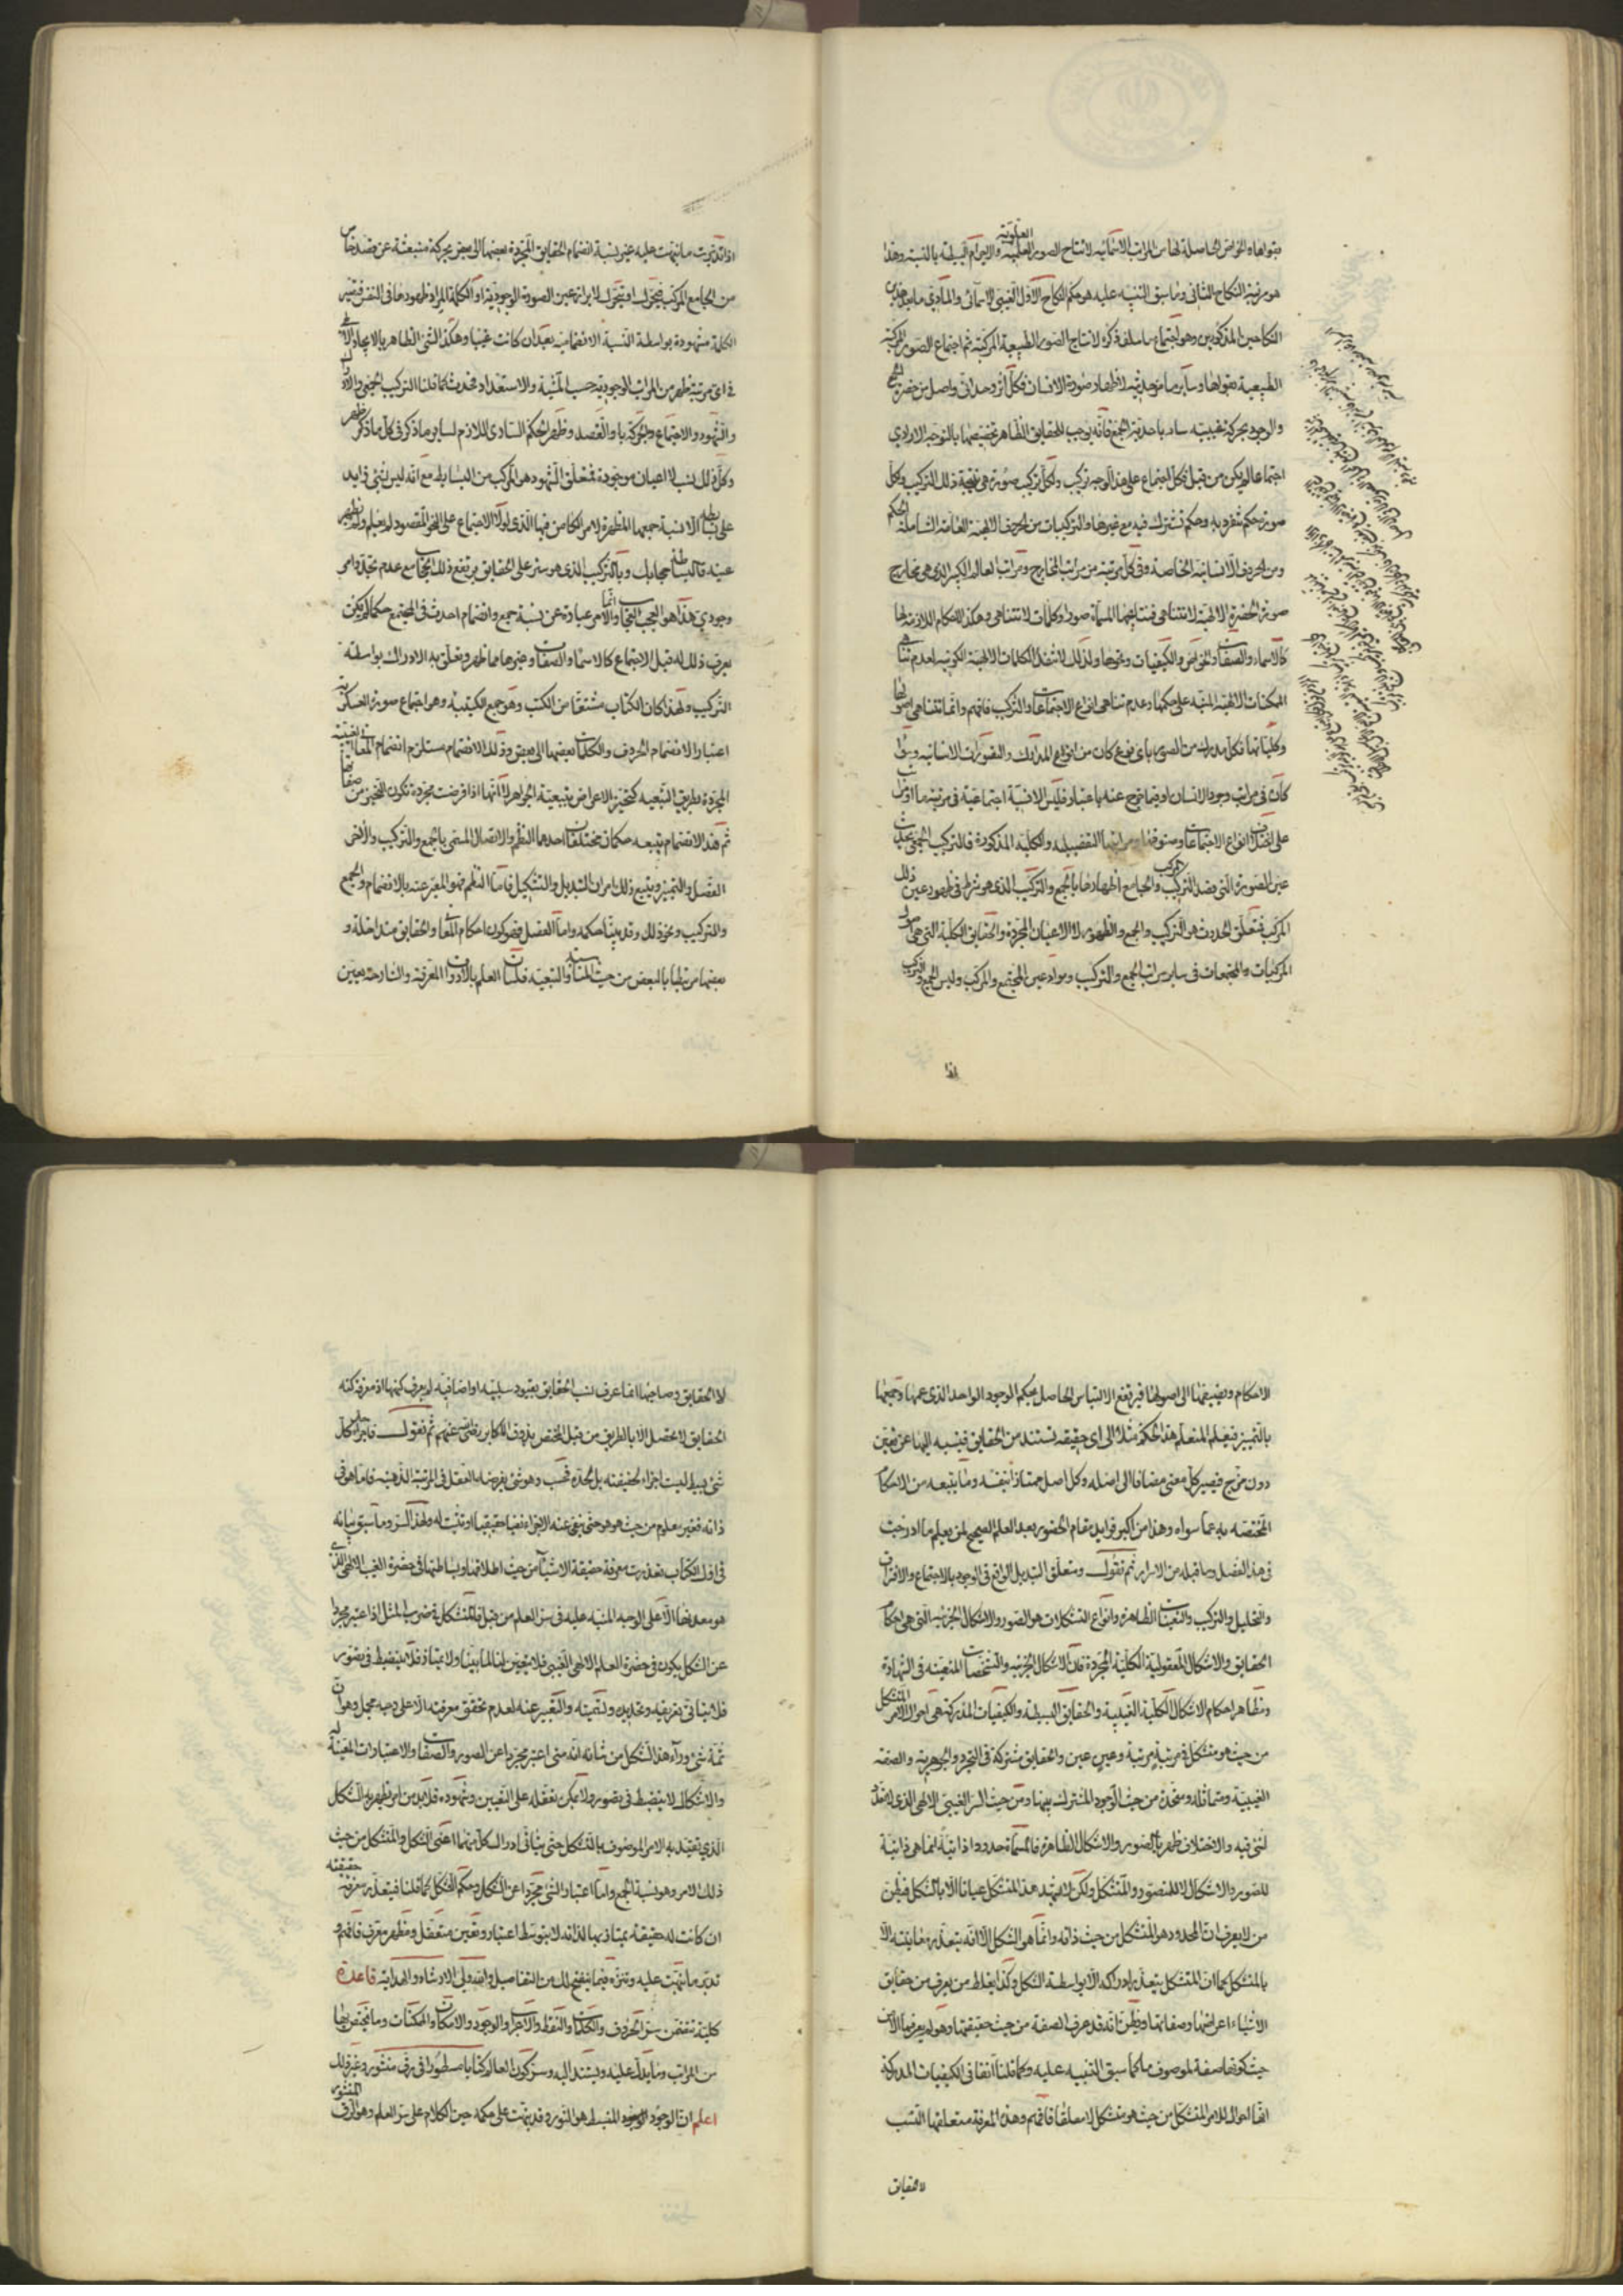 بقواها والخواص الحاصلة لها من المراتب الاسمائية لانتاج الصور العلوية والاجرام البسيطة بالنسبة وهذا
هو مرتبة النكاح الثانى وما سبق التنبيه عليه هو حكم النكاح الاول الغيبى الاسمائى والمادى ما بعد هذين
النكاحين المذكورين وهو اجتماع ما سلف ذكره لانتاج الصور الطبيعية المركبة ثم اجتماع الصور المركبة
الطبيعية بقواها وساير ما مر حديثه لاظهار صورة الانسان فكل اثر وحدانى واصل من حضرة الجمع
والوجود بحركة غيبية سار باحدية الجمع فانه يوجب للحقايق الظاهر تخصيصها بالتوجه الارادى
اجتماعا لم يكن من قبل فكل اجتماع على هذا الوجه تركيب ولكل تركيب صورة هى نتيجة ذلك التركيب ولكل
صورة حكم تنفرد به وحكم تشترك فيه مع غيرها والتركيبات من الحروف الالهية العامة الشاملة الحكم
ومن الحروف الانسانية الخاصة وفى كل مرتبة من مراتب المخارج ومراتب العالم الكبير الذى هى مخارج
صورة الحضرة الالهية لا تتناهى فنتايجها المسماة صورا وكلمات لا تتناهى وهكذا الاحكام اللازمة لها
كالاسماء والصفات والخواص والكيفيات ونحوها ولذلك لا تنفد الكلمات الالهية الكونية لعدم تناهى
الممكنات الالهية المنبه على حكمها وعدم تناهى انواع الاجتماعات والتركيب فافهم وانما تتناهى اصولها
وكلياتها فكل مدرك من الصور باى نوع كان من انواع المدارك والتصورات الانسانية وسوا
كان فى مراتب وجود الانسان او فيما خرج عنه باعتبار فليس الا نسبة اجتماعية فى مرتبة ما او مراتب
على اختلاف انواع الاجتماعات وصنوفها ومراتبها التفصيلية والكلية المذكورة فالتركيب الجمعى يحدث
عين الصورة التى قصد المركب والجامع اظهارها بالجمع والتركيب الذى هو شرط فى ظهور عين ذلك
المركب فمتعلق الحدوث هو التركيب والجمع والظهور لا الاعيان المجردة والحقايق الكلية التى هى اصول
المركبات والمجتمعات فى ساير مراتب الجمع والتركيب ومواد عين المجتمع والمركب وليس الجمع والتركيب
اذا
اذا تدبرت ما نبهت عليه غير نسبة انضمام الحقايق المجردة بعضها الى بعض بحركة منبعثة عن قصد خاص
من الجامع المركب فتحرك او يتحرك لابراز عين الصورة الوجودية او الكلمة المراد ظهورها فى النفس فتصير
الكلمة مشهودة بواسطة النسبة الانضمامية بعد ان كانت غيبا وهكذا الشى الظاهر بالايجاد الالهى
فى اى مرتبة ظهر من المراتب الوجودية حسب المشية والاستعداد فحدث كما قلنا التركيب الجمعى والادراك
والشهود والاجتماع والحركة بالقصد وظهر الحكم السارى اللازم لساير ما ذكر فى كل ما ذكر
وكل ذلك نسب لا اعيان موجودة فمتعلق الشهود هو المركب من البسايط مع انه ليس بشى زايد
على بسايطه الا نسبة جمعها المظهرة لامر الكامن فيها الذى لولا الاجتماع على النحو المقصود لم يعلم ولم تظهر
عينه فالبسايط حجابك وبالتركيب الذى هو ستر على الحقايق يرتفع ذلك الحجاب مع عدم تجدد امر
وجودى هذا هو العجب العجاب وانما الامر عبارة عن نسبة جمع وانضمام احدث فى المجتمع حكما لم يكن
يعرف ذلك له قبل الاجتماع كالاسماء والصفات وغيرهما مما ظهر وتعلق به الادراك بواسطة
التركيب ولهذا كان الكتاب مشتقا من الكتب وهو جمع الكتيبة وهو اجتماع صورة العسكر
اعتبارا لانضمام الحروف والكلمات بعضها الى بعض وذلك الانضمام مستلزم انضمام المعانى الغيبية
المجردة بطريق التبعية كتحيز الاعراض بتبعية الجواهر لانها اذا فرضت مجردة تكون التحيز من صفاتها
ثم هذا الانضمام يتبعه حكمان مختلفان احدهما النظم والاتصال المسمى بالجمع والتركيب والاخر
الفصل والتمييز ويتبع ذلك امران التبديل والتشكيل فاما النظم فهو المعبر عنه بالانضمام والجمع
والتركيب ونحو ذلك وقد بينا حكمه واما الفصل فهو كون احكام المعانى والحقايق متداخلة و
بعضها مرتبطا بالبعض من حيث المناسبة والتبعية فلسان العلم بالادوات المعرفة والشارحة يعين
الاحكام ويضيفها الى اصولها فيرتفع الالتباس الحاصل بحكم الوجود الواحد الذى عمها وجمعها
بالتمييز فيعلم المتعلم هذا الحكم مثلا الى اى حقيقة تستند من الحقايق فينسبه اليها عن يقين
دون مزج فيصير كل معنى مضافا الى اصله وكل اصل ممتازا بنفسه وما يتبعه من الاحكام
المختصة به عما سواه وهذا من اكبر فوايد مقام الحضور بعد العلم الصحيح لمن يعلم ما ادرجت
فى هذا الفصل وما قبله من الاسرار ثم نقول ومتعلق التبديل الواقع فى الوجود بالاجتماع والافتراق
والتحليل والتركيب والتعينات الظاهرة وانواع التشكلات هو الصور والاشكال الجزئية التى هى احكام
الحقايق والاشكال المعقولية الكلية المجردة فان الاشكال الجزئية والتشخصات المتعينة فى الشهادة
ومظاهر احكام الاشكال الكلية الغيبية والحقايق البسيطة والكيفيات المدركة هى احوال الامر المتشكل
من حيث هو متشكل فى مرتبة مرتبة وعين عين والحقايق مشتركة فى التجرد والجوهرية والصفة
الغيبية ومتماثلة ومتحدة من حيث الوجود المشترك بينها ومن حيث السر الغيبى الالهى الذى لا تعدد
لشى فيه والاختلاف ظهر بالصور والاشكال الظاهرة فالمسماة حدودا ذاتية انما هى ذاتية
للصور والاشكال لا للمتصور والمتشكل ولكن لا يشهد هذا المتشكل عيانا الا بالتشكل فيظن
من لا يعرف ان المحدود هو المتشكل من حيث ذاته وانما هو الشكل الا انه يتعذر معاينته الا
بالمتشكل كما ان المتشكل يتعذر ادراكه الا بواسطة الشكل وكذا يغلط من يعرف من حقايق
الاشياء اعراضها وصفاتها ويظن انه قد عرف الصفة من حيث حقيقتها وهو لم يعرفها الا من
حيث كونها صفة لموصوف ما كما سبق التنبيه عليه وكما قلنا آنفا فى الكيفيات المدركة
انها احوال للامر المتشكل من حيث هو متشكل لا مطلقا فافهم وهذه المعرفة متعلقها النسب
لا الحقايق
لا الحقايق وصاحبها انما عرف نسب الحقايق بقيود سلبية او اضافية لم يعرف كنهها اذ معرفة كنه
الحقايق لا تحصل الا بالطريق من قبل المختص بذوق الاكابر رضى الله عنهم ثم نقول فاجزاء حد كل
شى بسيط ليست اجزاء لحقيقته بل لحده فحسب وهو شى يفرضه العقل فى المرتبة الذهنية فاما هو فى
ذاته فغير معلوم من حيث هو هو حتى ينفى عنه الاجزاء نفيا حقيقيا او تثبت له ولهذا السر وما سبق بيانه
فى اول الكتاب تعذرت معرفة حقيقة الاشياء من حيث اطلاقها وبساطتها فى حضرة الغيب الالهى الذى
هو معدنها الا على الوجه المنبه عليه فى سر العلم من قبل فالمتشكل فى ضرب المثل اذا اعتبر مجردا
عن الشكل يكون فى حضرة العلم الالهى الغيبى فلا يتعين لنا لما بينا ولا يمتاز فلا ينضبط فى تصور
فلا يتاتى تعريفه وتحديده وتسميته والتعبير عنه لعدم تحقق معرفته الا على وجه مجمل وهو ان
ثمة شى ورآء هذا الشكل من شانه انه متى اعتبر مجردا عن الصور والصفات والاعتبارات المعينة له
والاشكال لا ينضبط فى تصور ولا يمكن تعقله على التعيين وشهوده فلا بد من امر يظهر به الشكل
الذى تقيد به الامر الموصوف بالتشكل حتى يتاتى ادراك كل منهما اعنى الشكل والمتشكل من حيث
ذلك الامر وهو نسبة الجمع واما اعتبار الشى مجردا عن الشكل وحكم التشكل كما قلنا فيتعذر معرفة حقيقته
ان كانت له حقيقة يمتاز بها لذاته لا بتوسط اعتبار وتعين متعقل ومظهر معرف فافهم و
تدبر ما نبهت عليه وتنزه فيما ينفتح لك من التفاصيل والله ولى الارشاد والهداية قاعدة
كلية تتضمن سر الحروف والكلمات والنقط والاعراب والوجود والامكان والممكنات وما يختص بها
من المراتب وما يدل عليه ويستند اليه وسر كون العالم كتابا مسطورا فى رق منشور وغير ذلك
اعلم ان الوجود المنبسط هو النور وقد نبهت على حكمه حين الكلام على سر العلم وهو الرق المنشور